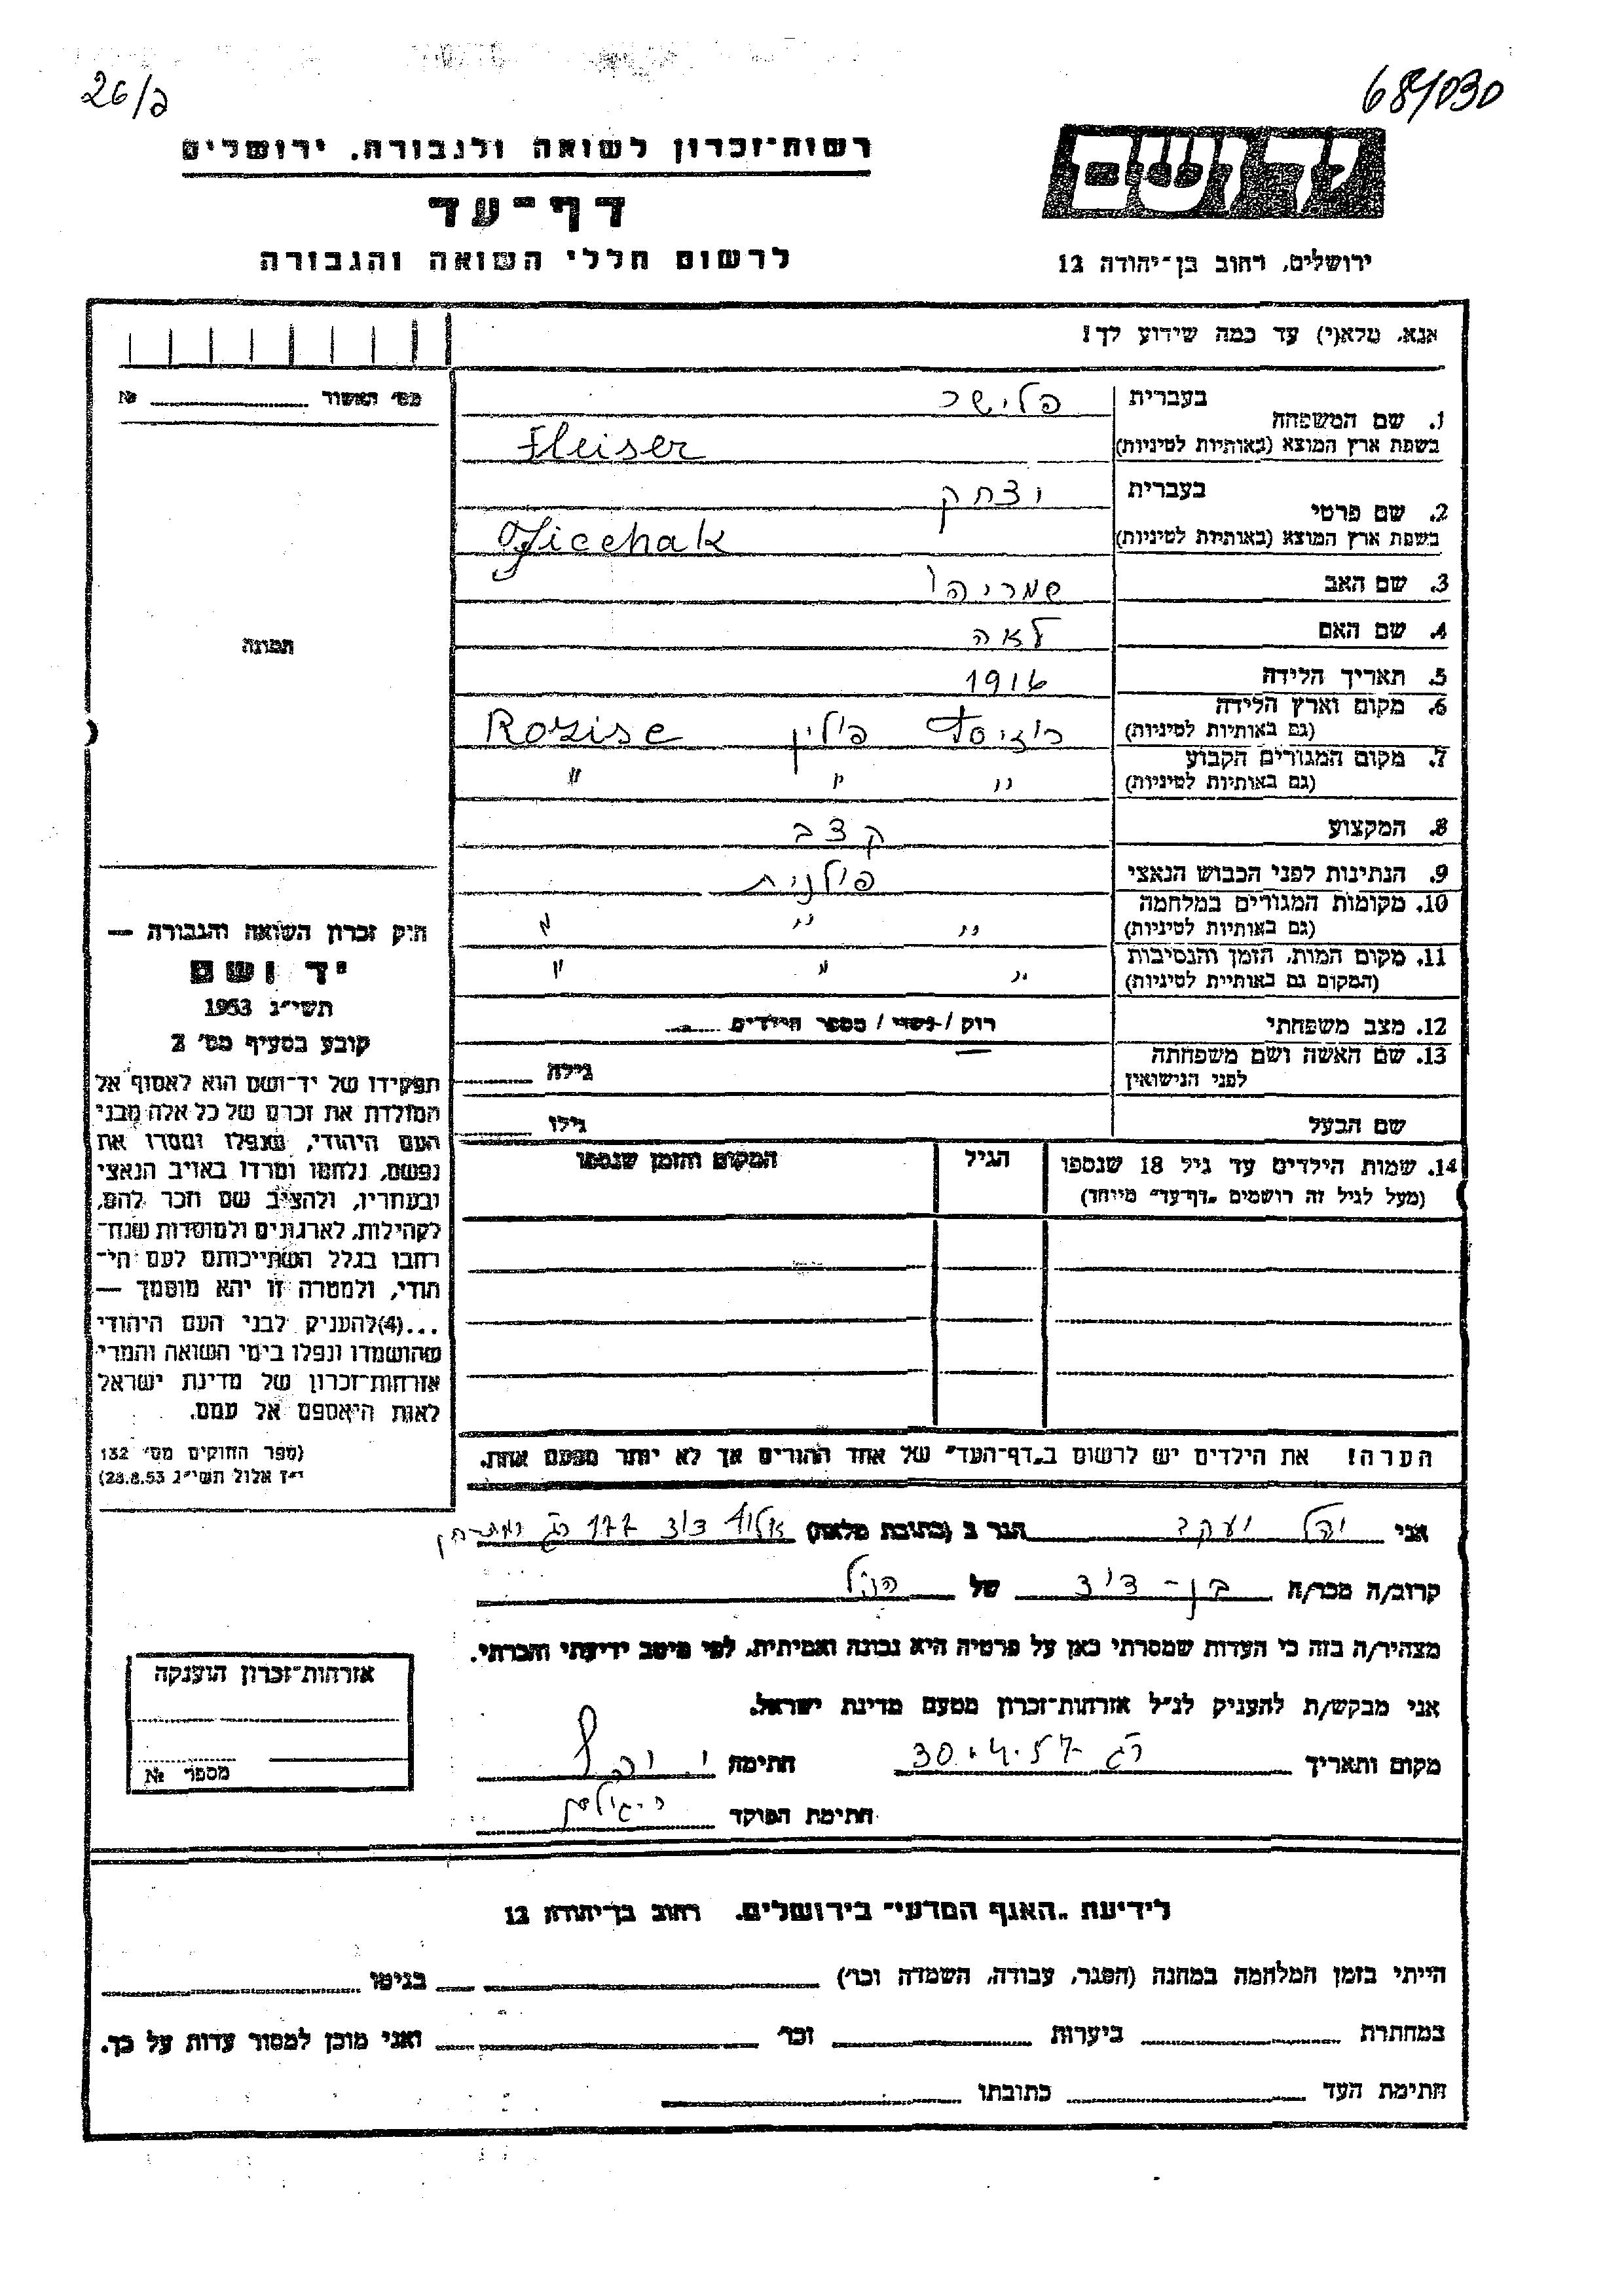 26/ב
68/030
רשות־זכרון לשואה ולגבורה. ירושלים
דף־עד
לרשום חללי השואה והגבורה
יד ושם
ירושלים, רחוב בן־יהודה 12
אנא, מלא(י) עד כמה שידוע לך!
מס' האשור № 
1. שם המשפחה
בעברית פלישר
בשפת ארץ המוצא (באותיות לטיניות) Fleiser
2. שם פרטי
בעברית יצחק
בשפת ארץ המוצא (באותיות לטיניות) Jicchak
3. שם האב שמריהו
4. שם האם לאה
5. תאריך הלידה 1916
6. מקום וארץ הלידה פולין Rozisc
(גם באותיות לטיניות)
7. מקום המגורים הקבוע " " "
(גם באותיות לטיניות)
8. המקצוע קצב
9. הנתינות לפני הכבוש הנאצי פולנית
10. מקומות המגורים במלחמה " " "
(גם באותיות לטיניות)
11. מקום המות, הזמן והנסיבות " " "
(המקום גם באותיות לטיניות)
12. מצב משפחתי רווק / נשוי / מספר הילדים
13. שם האשה ושם משפחתה
לפני הנישואין גילה
שם הבעל גילו
14. שמות הילדים עד גיל 18 שנספו הגיל המקום והזמן שנספו
(מעל לגיל זה רושמים „דף־עד" מיוחד)
הערה! את הילדים יש לרשום ב„דף־העד" של אחד ההורים אך לא יותר מפעם אחת.
תמונה
חוק זכרון השואה והגבורה —
יד ושם
תשי"ג 1953
קובע בסעיף מס' 2
תפקידו של יד־ושם הוא לאסוף אל
המולדת את זכרם של כל אלה מבני
העם היהודי, שנפלו ומסרו את
נפשם, נלחמו ומרדו באויב הנאצי
ובעוזריו, ולהציב שם וזכר להם,
לקהילות, לארגונים ולמוסדות שנח־
רבו בגלל השתייכותם לעם הי־
הודי, ולמטרה זו יהא מוסמך —
...(4)להעניק לבני העם היהודי
שהושמדו ונפלו בימי השואה והמרי
אזרחות־זכרון של מדינת ישראל
לאות היאספם אל עמם.
(ספר החוקים מס' 132
י"ז אלול תשי"ג 28.8.53)
אני יהל יעקב הגר ב (כתובת מלאה) 177 רג
קרוב/ה מכר/ה בן-דוד של הנ"ל
מצהיר/ה בזה כי העדות שמסרתי כאן על פרטיה היא נכונה ואמיתית, לפי מיטב ידיעתי והכרתי.
אני מבקש/ת להעניק לנ"ל אזרחות־זכרון מטעם מדינת ישראל.
מקום ותאריך רג 30.4.57 חתימה י. יהל
חתימת הפוקד
אזרחות־זכרון הוענקה
מספר №
לידיעת „האגף המדעי" בירושלים. רחוב בן־יהודה 12
הייתי בזמן המלחמה במחנה (הסגר, עבודה, השמדה וכו') בגיטו
במחתרת ביערות וכו' ואני מוכן למסור עדות על כך.
חתימת העד כתובתו